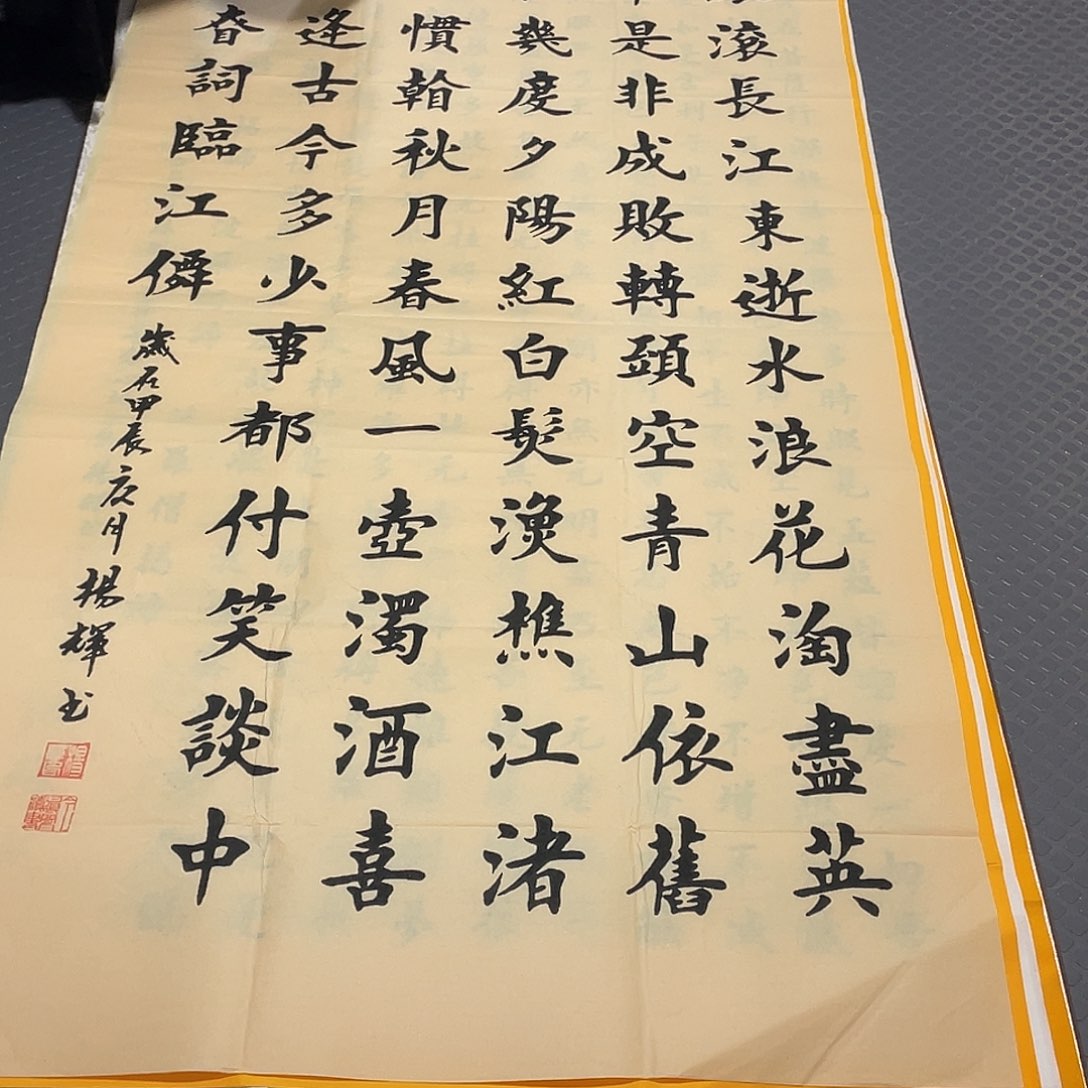 滚長江東逝水浪花淘盡英
是非成敗轉頭空青山依舊
幾度夕陽紅白髮漁樵江渚
慣看秋月春風一壺濁酒喜
逢古今多少事都付笑談中
昚詞臨江僊
歲在甲辰月楊輝书